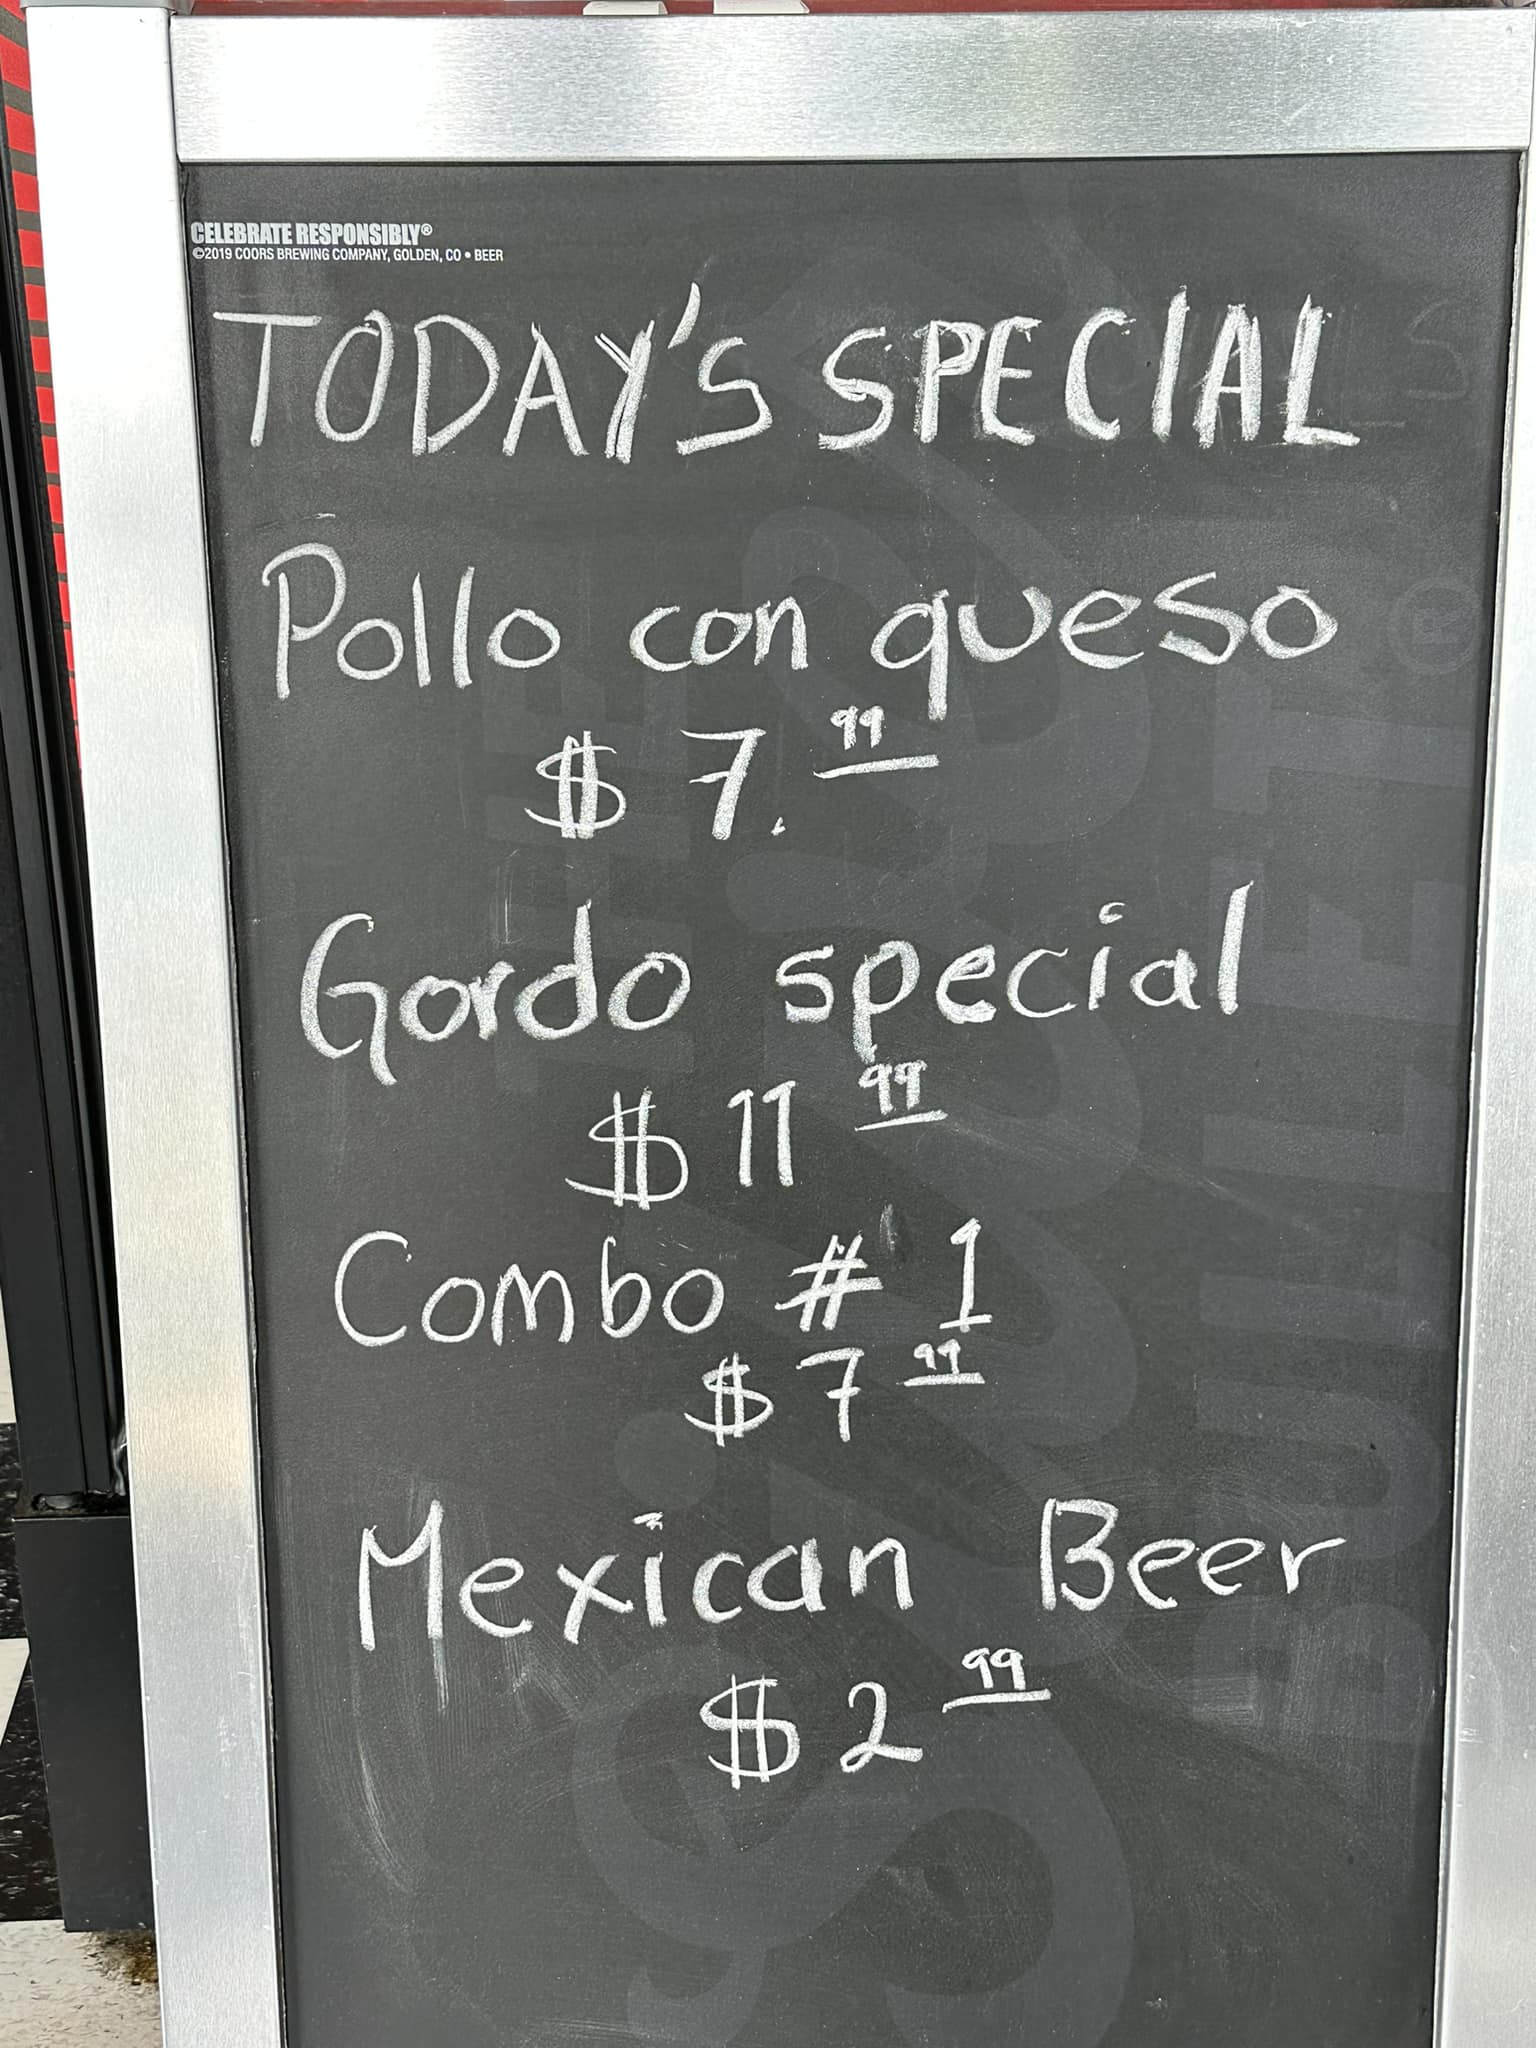 CELEBRATE RESPONSIBLY®
©2019 COORS BREWING COMPANY, GOLDEN, CO • BEER
TODAY'S SPECIAL
Pollo con queso
$ 7.99
Gordo special
$ 11 99
Combo # 1
$ 7 99
Mexican Beer
$ 2 99